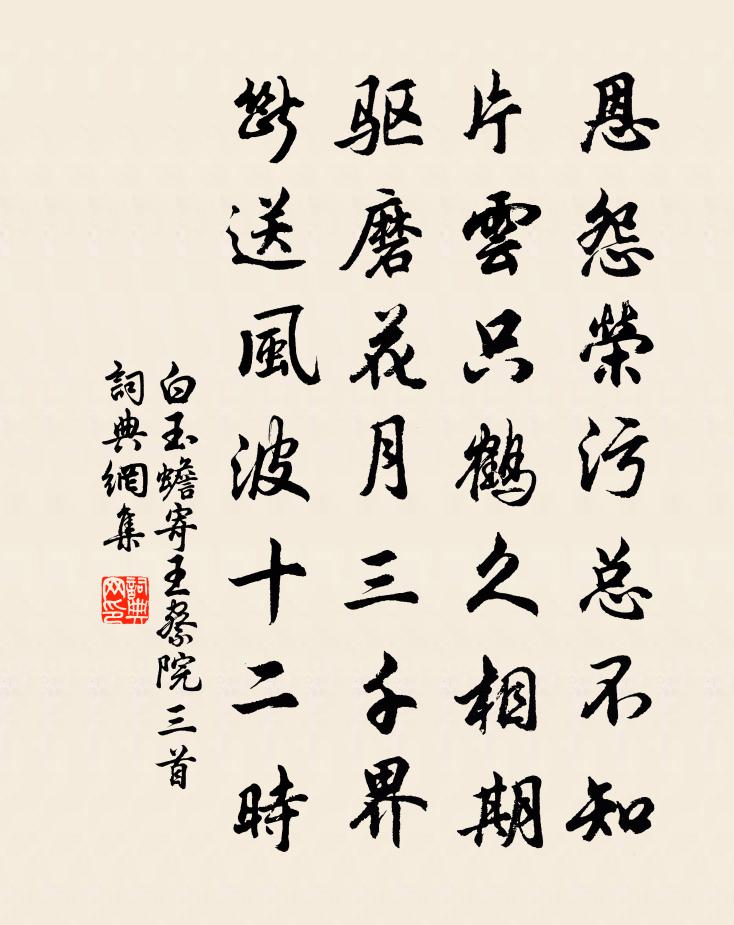 恩怨榮污总不知
片雲只鶴久相期
驱磨花月三千界
斷送風波十二時
白玉蟾寄王察院三首
詞典網集
詞典网印